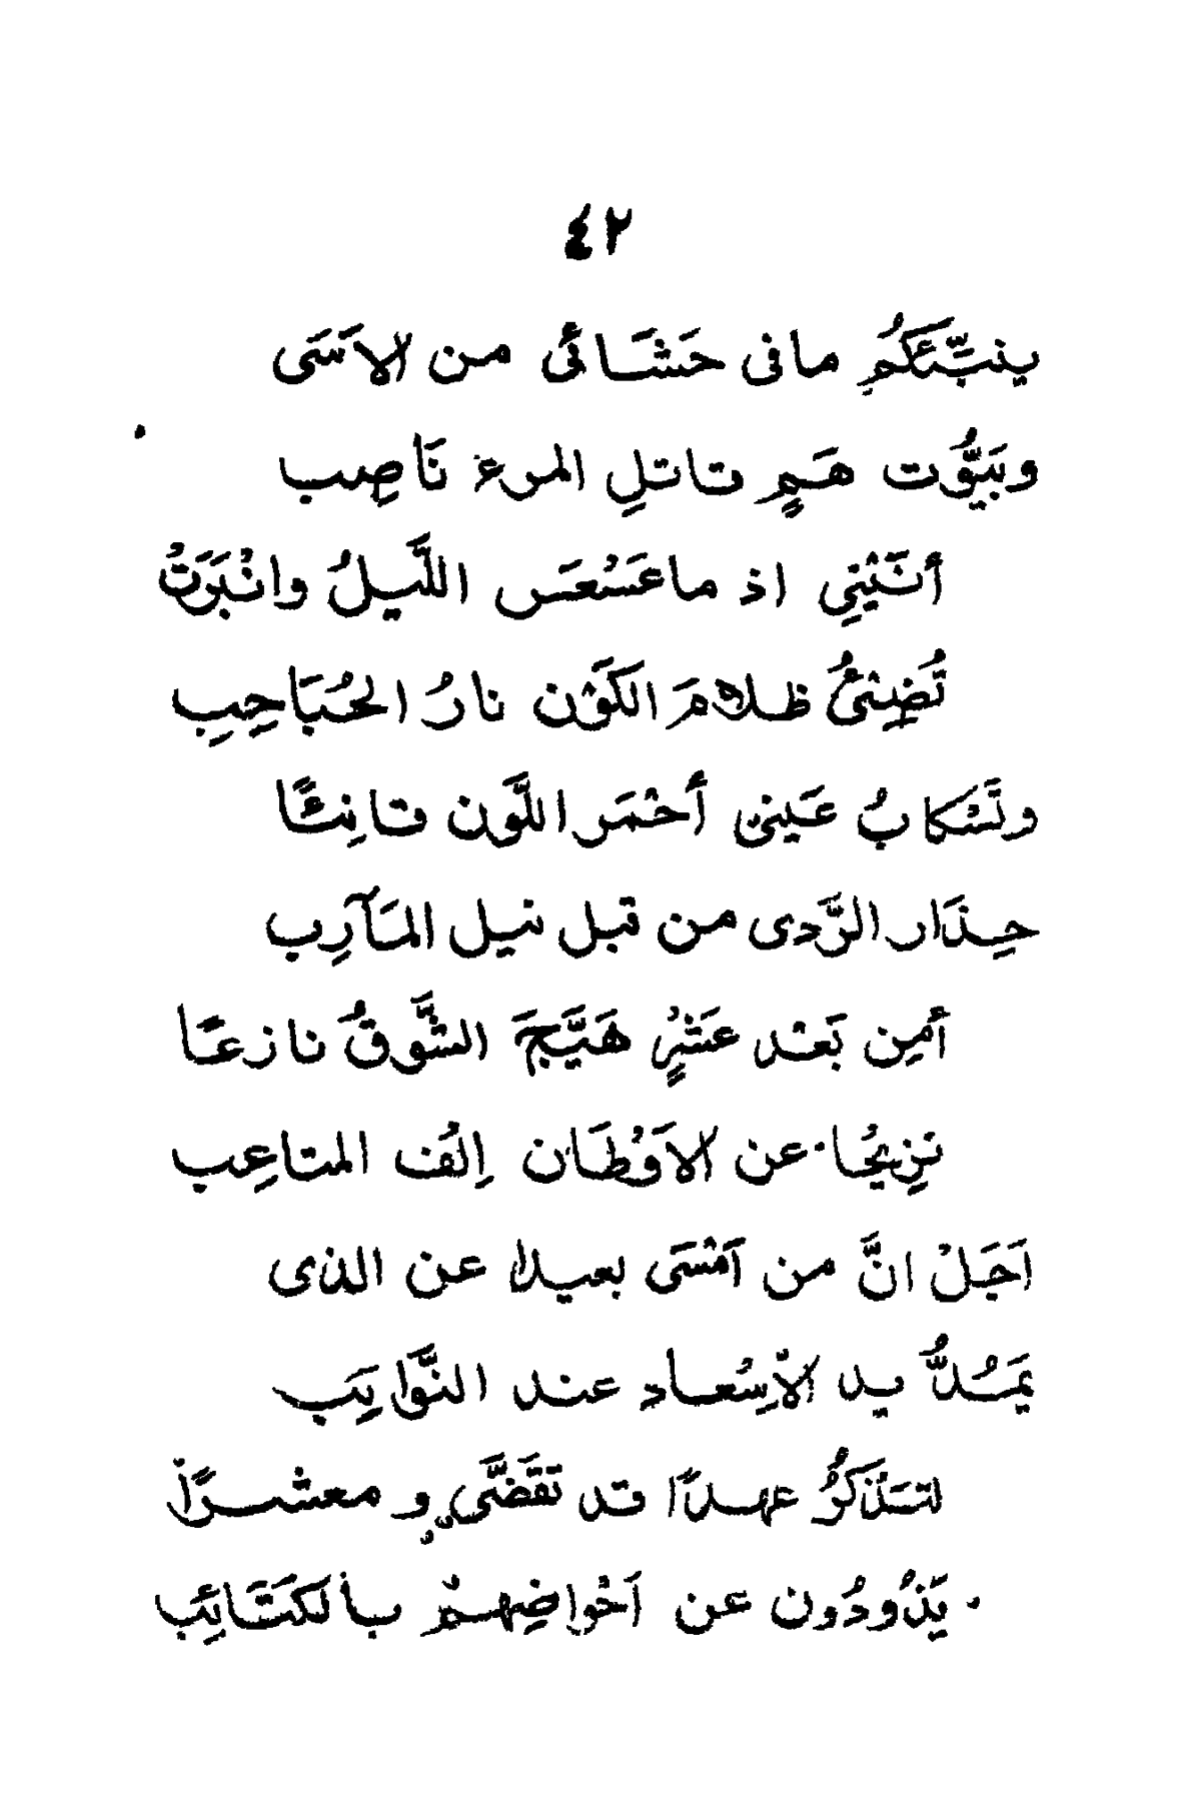 ٤٢
ينبِّئَكُم مافى حَشَائى من الاَسَى
وبَيُّوت هَمٍ قاتلِ المرء نَاصِب
أنَيْنِي اذ ماعَسْعَس اللَّيلُ وانْبَرَتْ
تُضِيْئُ ظلامَ الكَوْن نارُ الحُبَاحِبِ
وتَسْكابُ عَينى أحْمَر اللَّون قانِئًا
حِذَار الرَّدى من قبل نيل المَآرِب
أمِن بَعْد عَشْرٍ هَيَّجَ الشَّوقُ نازعًا
نزِيحُا عن الاَوْطَان اِلْفَ المتاعِب
اَجَلْ انَّ من اَمْسَى بعيدا عن الذى
يَمُدُّ يد الاْسِعْاد عند النَّوَايَب
لتَذَكرُّ عهدًا قد تقَضَّى و معشرًا
يَذْودُون عن اَحْواضِهمْ بالكتَائِب